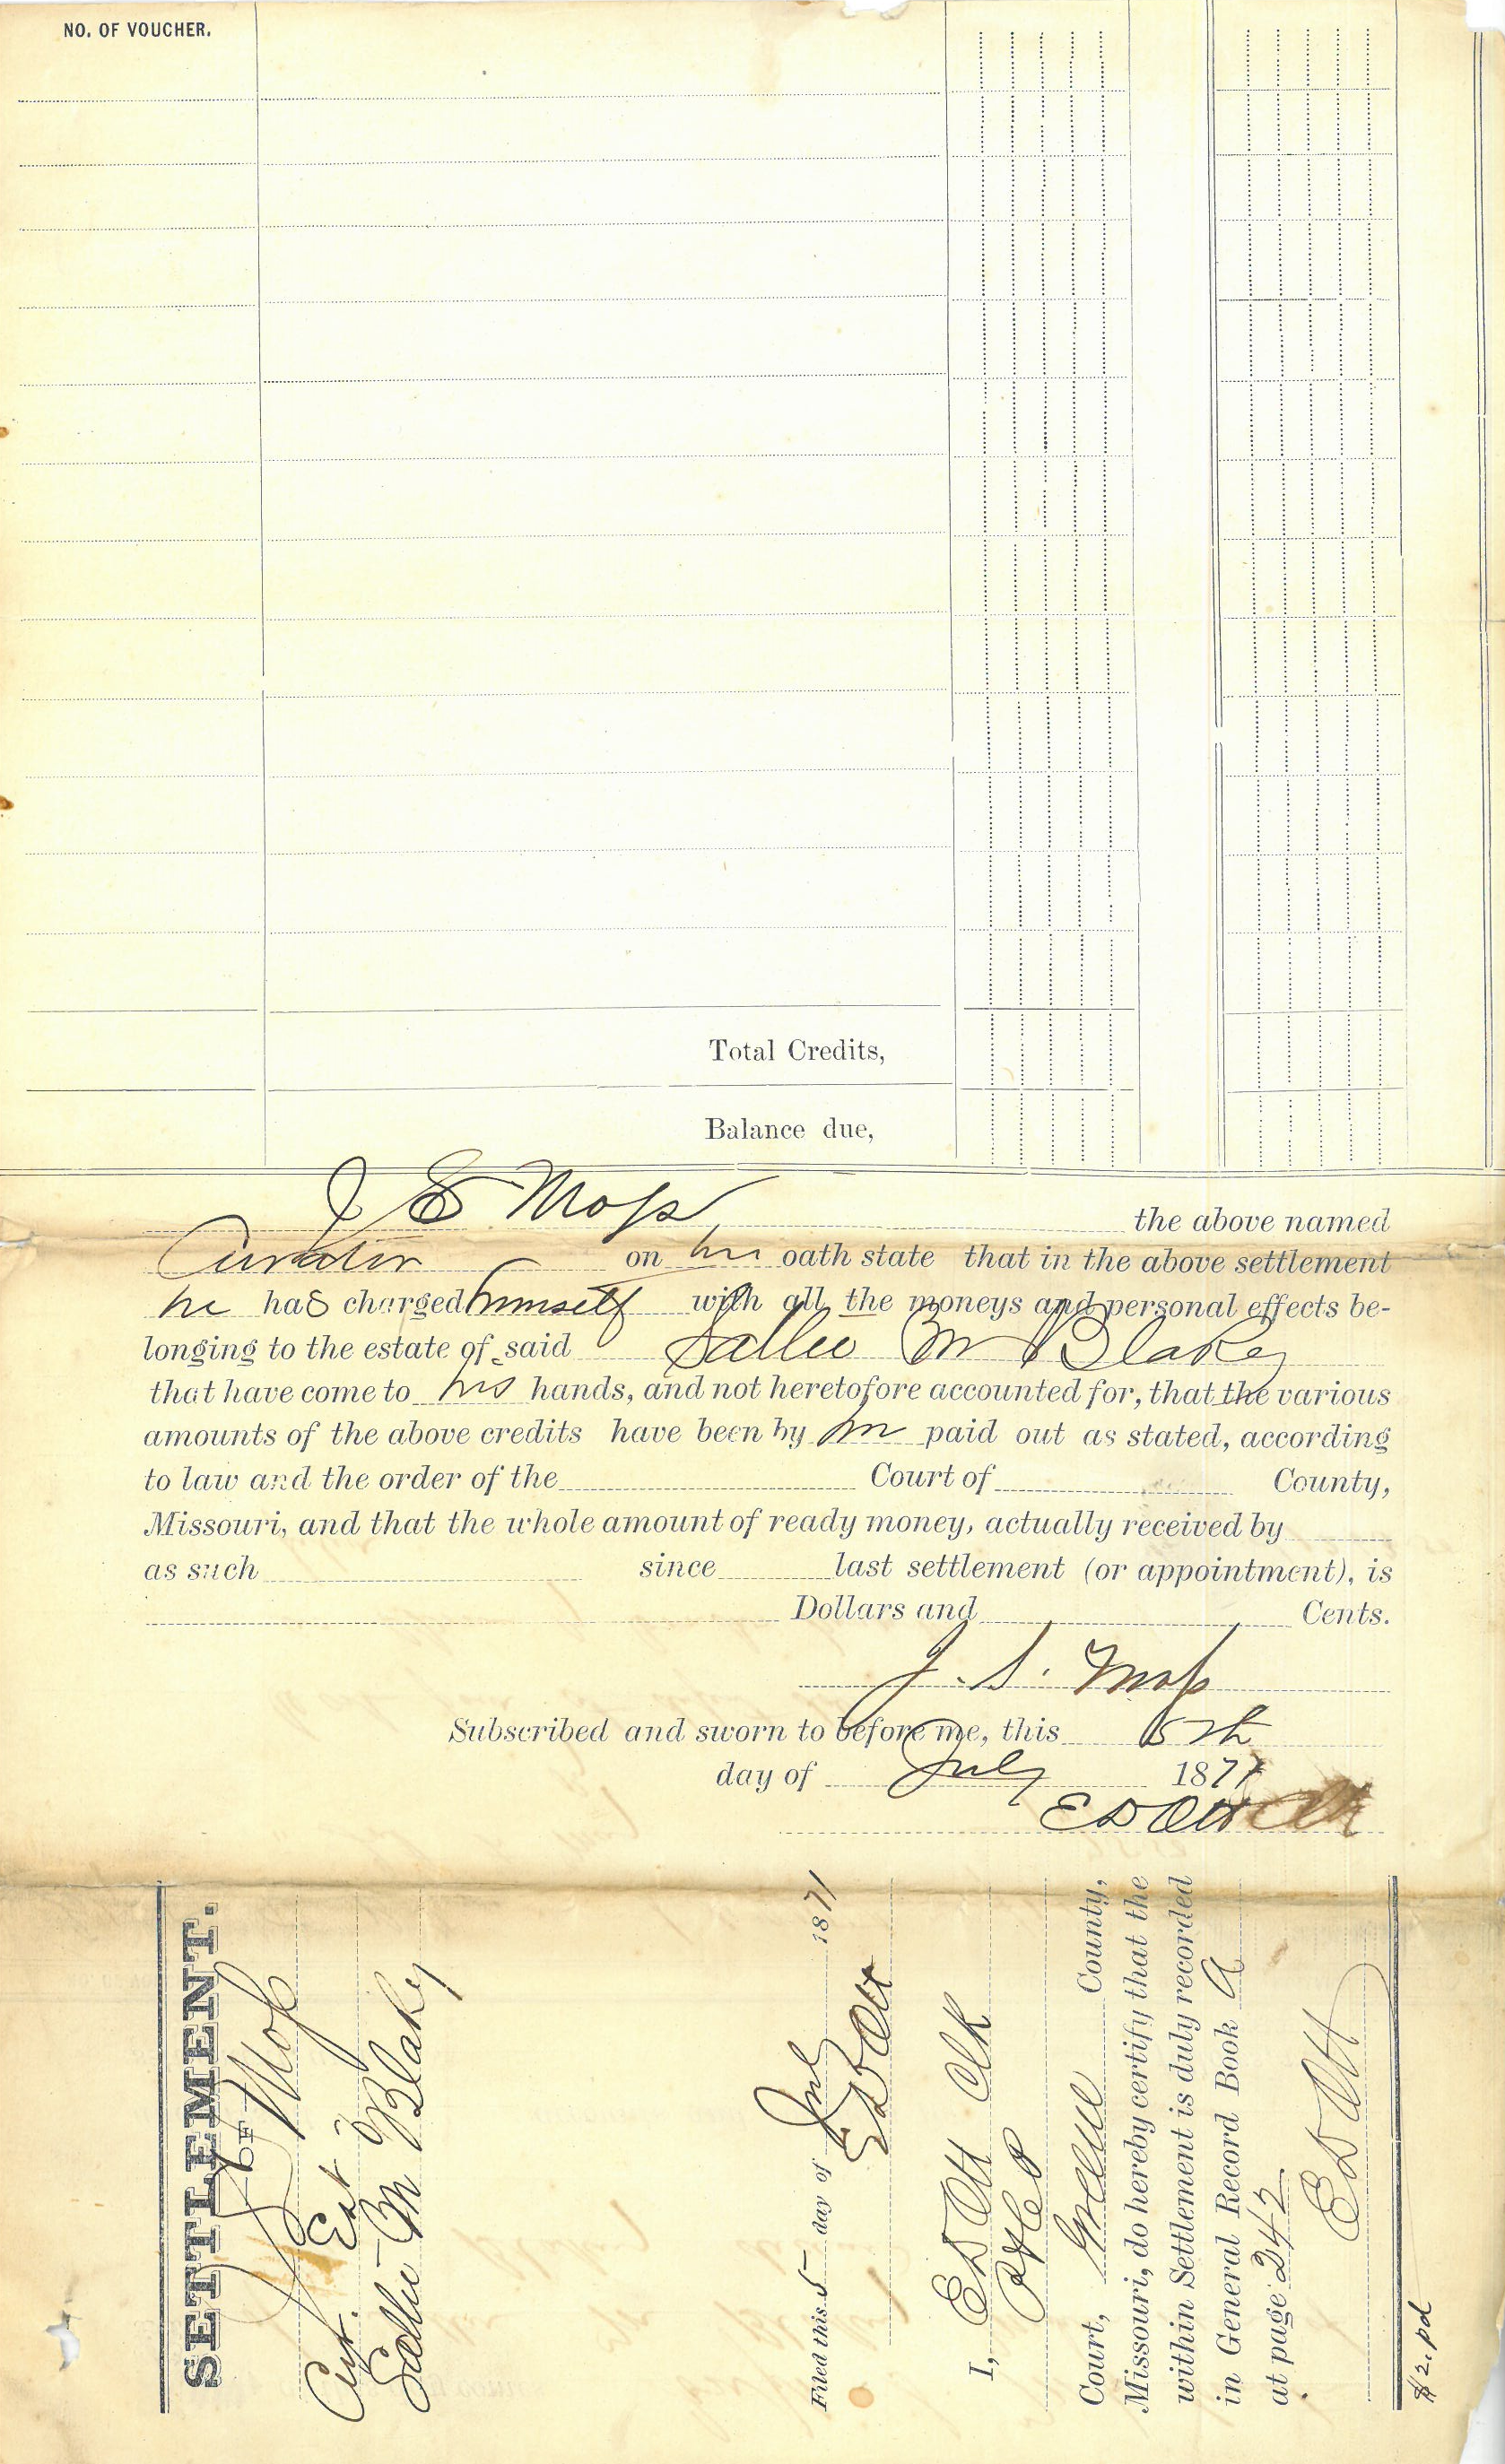 NO. OF VOUCHER.
Total Credits,
Balance due,
J E Moss the above named
Curator on his oath state that in the above settlement
he has charged himself with all the moneys and personal effects be-
longing to the estate of said Sallie M Blakey
that have come to his hands, and not heretofore accounted for, that the various
amounts of the above credits have been by him paid out as stated, according
to law and the order of the Court of County,
Missouri, and that the whole amount of ready money, actually received by
as such since last settlement (or appointment), is
Dollars and Cents.
J. S. Moss
Subscribed and sworn to before me, this 5th
day of July 1871
E D Ott Clk
SETTLEMENT.
OF
Moss
Cur. Est
Sallie M Blakey
Filed this 5 day of July 1871
E D Ott
I, E D Ott Clk
Court, Greene County,
Missouri, do hereby certify that the
within Settlement is duly recorded
in General Record Book A
at page 242
E D Ott
$2. pd